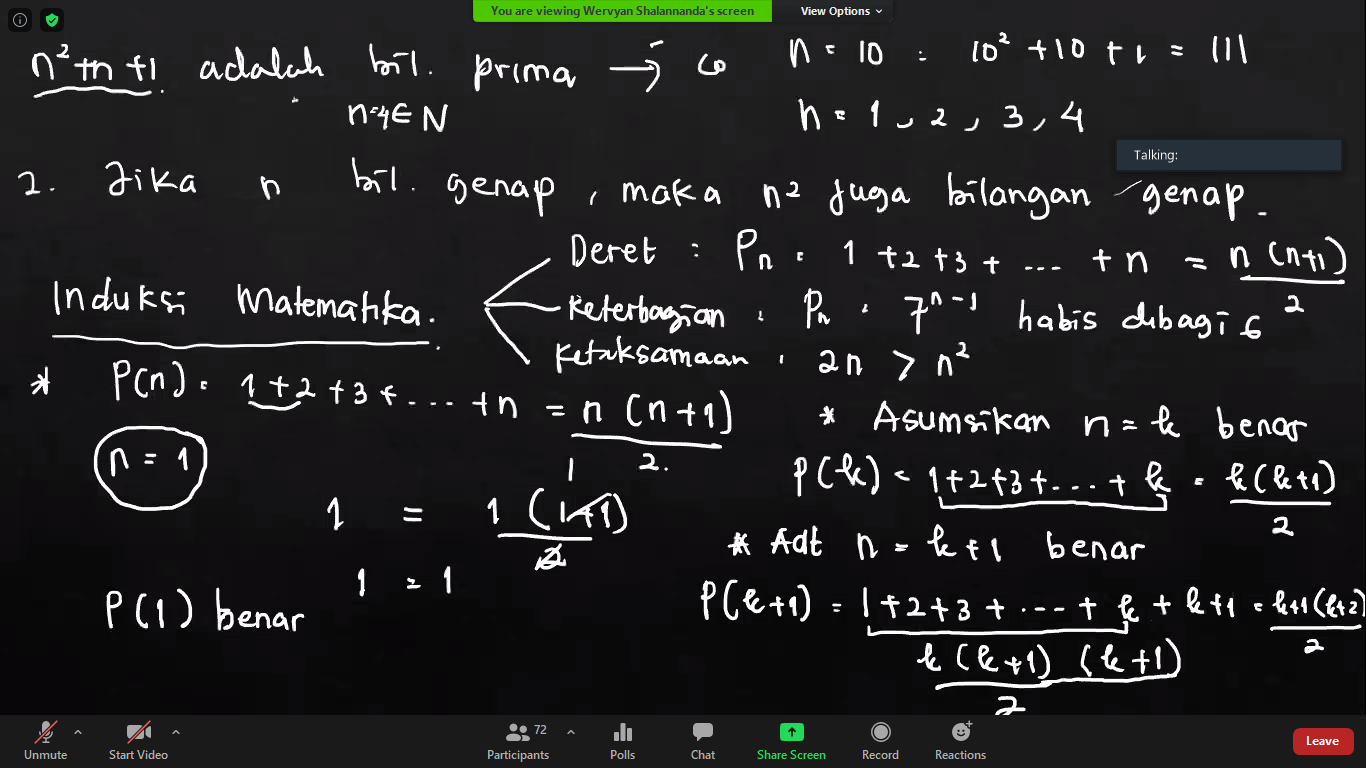 You are viewing Wervyan Shalannanda's screen View Options
n² + n + 1 adalah bil. prima → n = 10 : 10² + 10 + 1 = 111
n = 4 ∈ N n = 1, 2, 3, 4
Talking:
2. Jika n bil. genap, maka n² juga bilangan genap.
Deret : Pn : 1 + 2 + 3 + ... + n = n (n+1) / 2
Induksi Matematika. Keterbagian : Pn : 7^(n-1) habis dibagi 6
Ketaksamaan : 2n > n²
* P(n) : 1 + 2 + 3 + ... + n = n (n+1) / 2.
* Asumsikan n = k benar
n = 1
P(k) = 1 + 2 + 3 + ... + k = k (k+1) / 2
1 = 1 (1+1) / 2
* Adt n = k+1 benar
1 = 1
P(1) benar
P(k+1) = 1 + 2 + 3 + ... + k + k+1 = k+1 (k+2) / 2
k (k+1) (k+1) / 2
Unmute Start Video Participants 72 Polls Chat Share Screen Record Reactions Leave